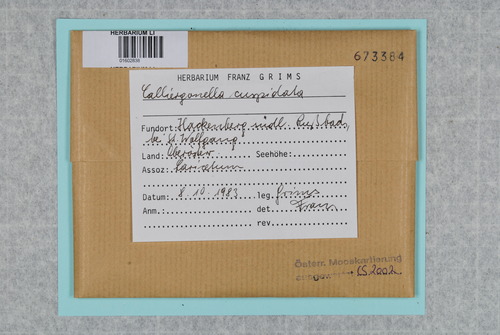 HERBARIUM LI
01602838
673384
HERBARIUM FRANZ GRIMS
Calliergonella cuspidata
Fundort: Hackenberg südl. Rußbad,
bei St. Wolfgang
Land: Oberöster. Seehöhe:
Assoz: Caricetum
Datum: 8.10.1983 leg. Grims
Anm. det. Franz
rev.
Österr. Mooskartierung
15.2002